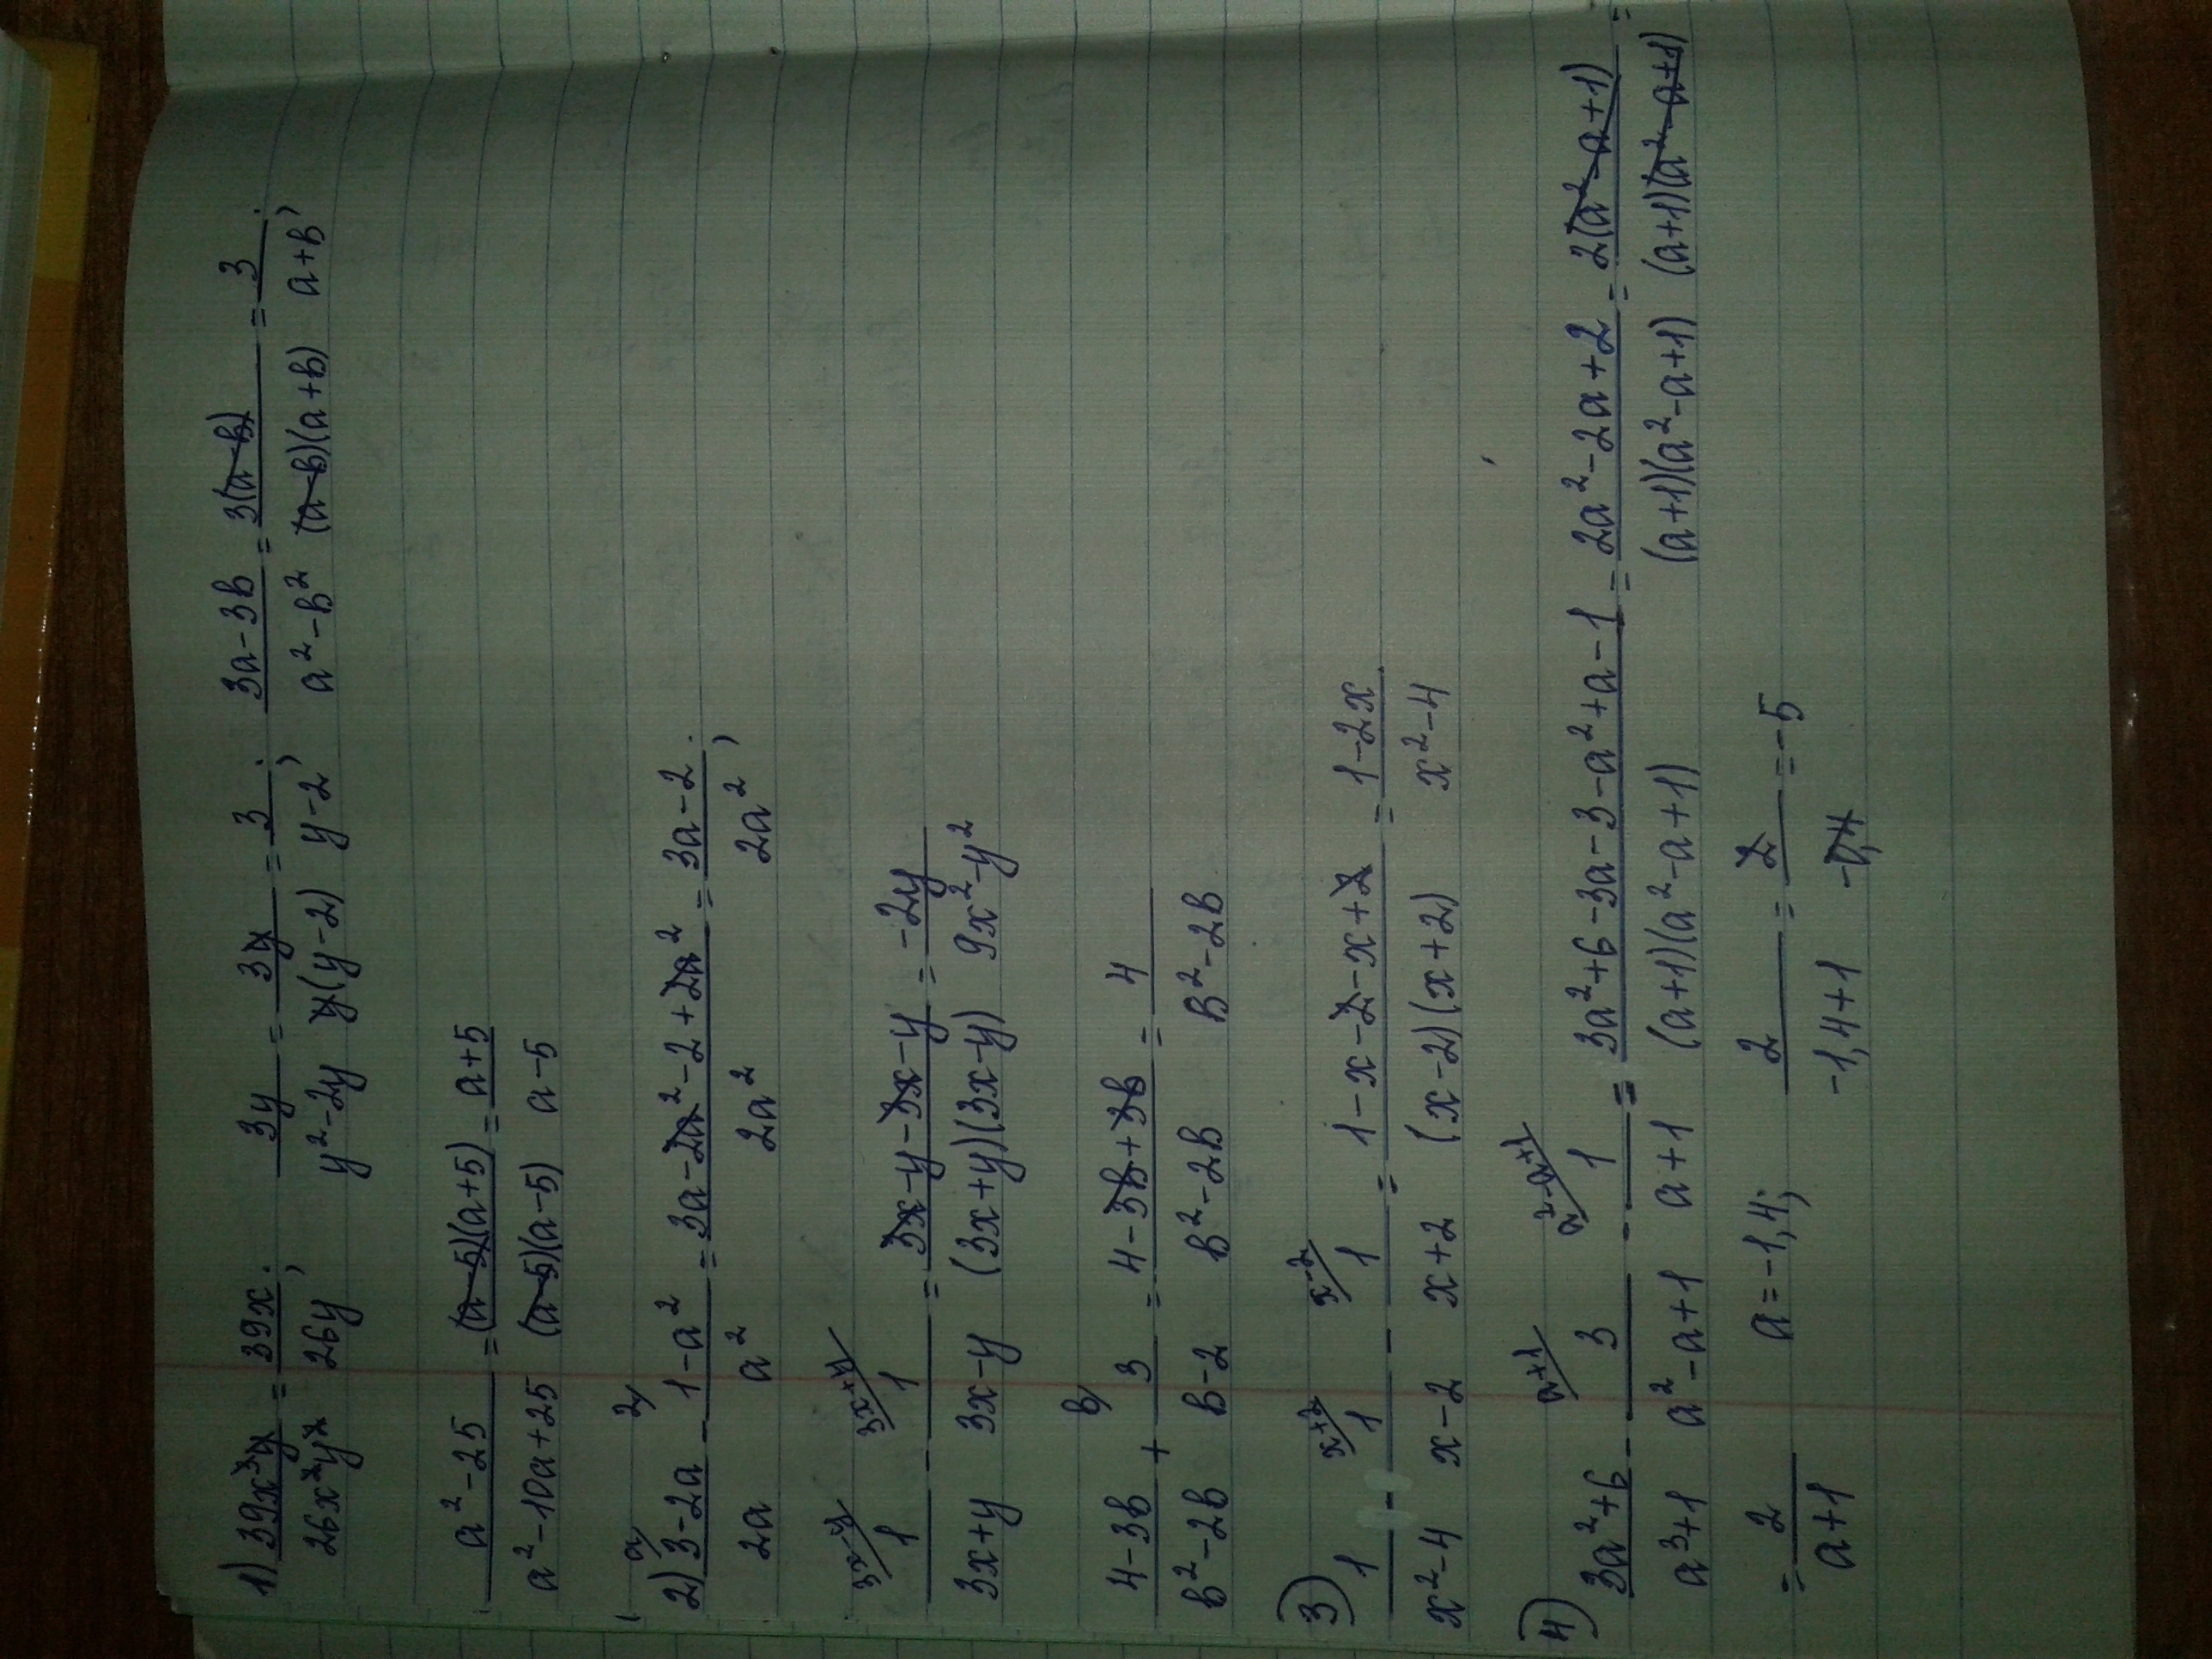 1) 39x³y/26x²y² = 39x/26y; 3y/(y²-2y) = 3y/(y(y-2)) = 3/(y-2); (3a-3b)/(a²-b²) = 3(a-b)/((a-b)(a+b)) = 3/(a+b);
(a²-25)/(a²-10a+25) = (a-5)(a+5)/((a-5)(a-5)) = (a+5)/(a-5)
a/ 2/
2) (3-2a)/2a - (1-a²)/a² = (3a-2a²-2+2a²)/2a² = (3a-2)/2a²;
3x-y/ 3x+y/
1/(3x+y) - 1/(3x-y) = (3x-y-3x-y)/((3x+y)(3x-y)) = -2y/(9x²-y²)
b/
(4-3b)/(b²-2b) + 3/(b-2) = (4-3b+3b)/(b²-2b) = 4/(b²-2b)
x+2/ x-2/
3) 1/(x²-4) - 1/(x-2) - 1/(x+2) = (1-x-2-x+2)/((x-2)(x+2)) = (1-2x)/(x²-4)
a+1/ a²-a+1/
4) (3a²+6)/(a³+1) - 3/(a²-a+1) - 1/(a+1) = (3a²+6-3a-3-a²+a-1)/((a+1)(a²-a+1)) = (2a²-2a+2)/((a+1)(a²-a+1)) = 2(a²-a+1)/((a+1)(a²-a+1)) =
= 2/(a+1) a=-1,4; 2/(-1,4+1) = 2/(-0,4) = -5